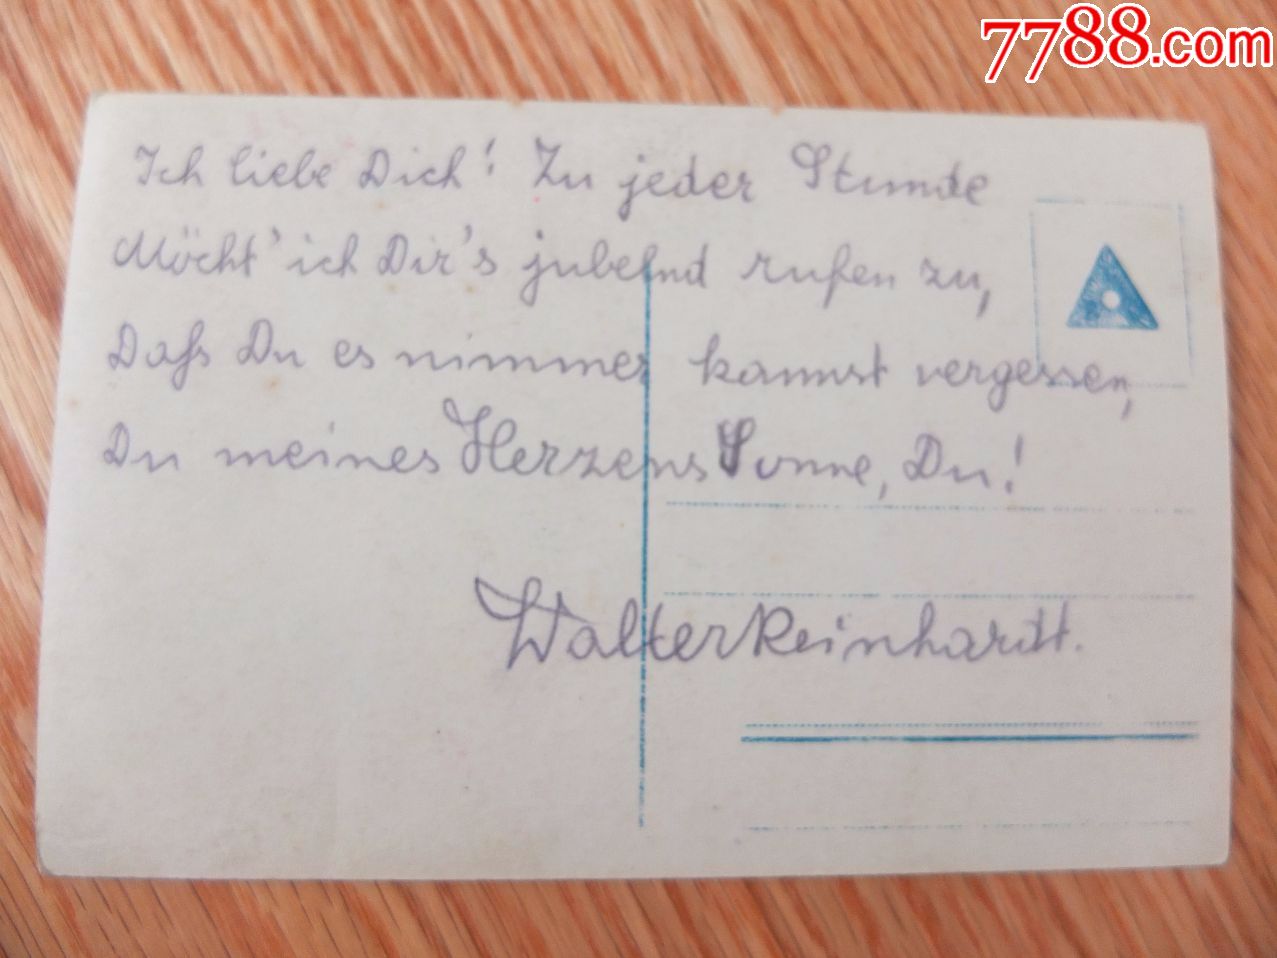 7788.com
Ich liebe Dich! Zu jeder Stunde
Möcht' ich Dir's jubelnd rufen zu,
Daß Du es nimmer kannst vergessen,
Du meines Herzens Sonne, Du!
Walter Reinhardt.